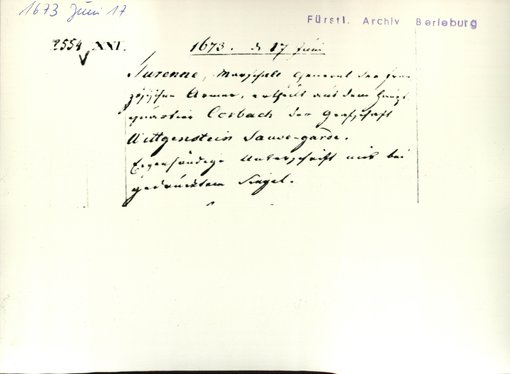 1673 Juni 17
Fürstl. Archiv Berleburg
2554 XXI. 1673. d. 17 Juni
Turenne, Marschall General der fran
zösischen Armee, ertheilt aus dem Haupt
quartier der Grafschaft
Wittgenstein Sauve-garde.
Eigenhändige Unterschrift mit bei
gedrucktem Siegel.